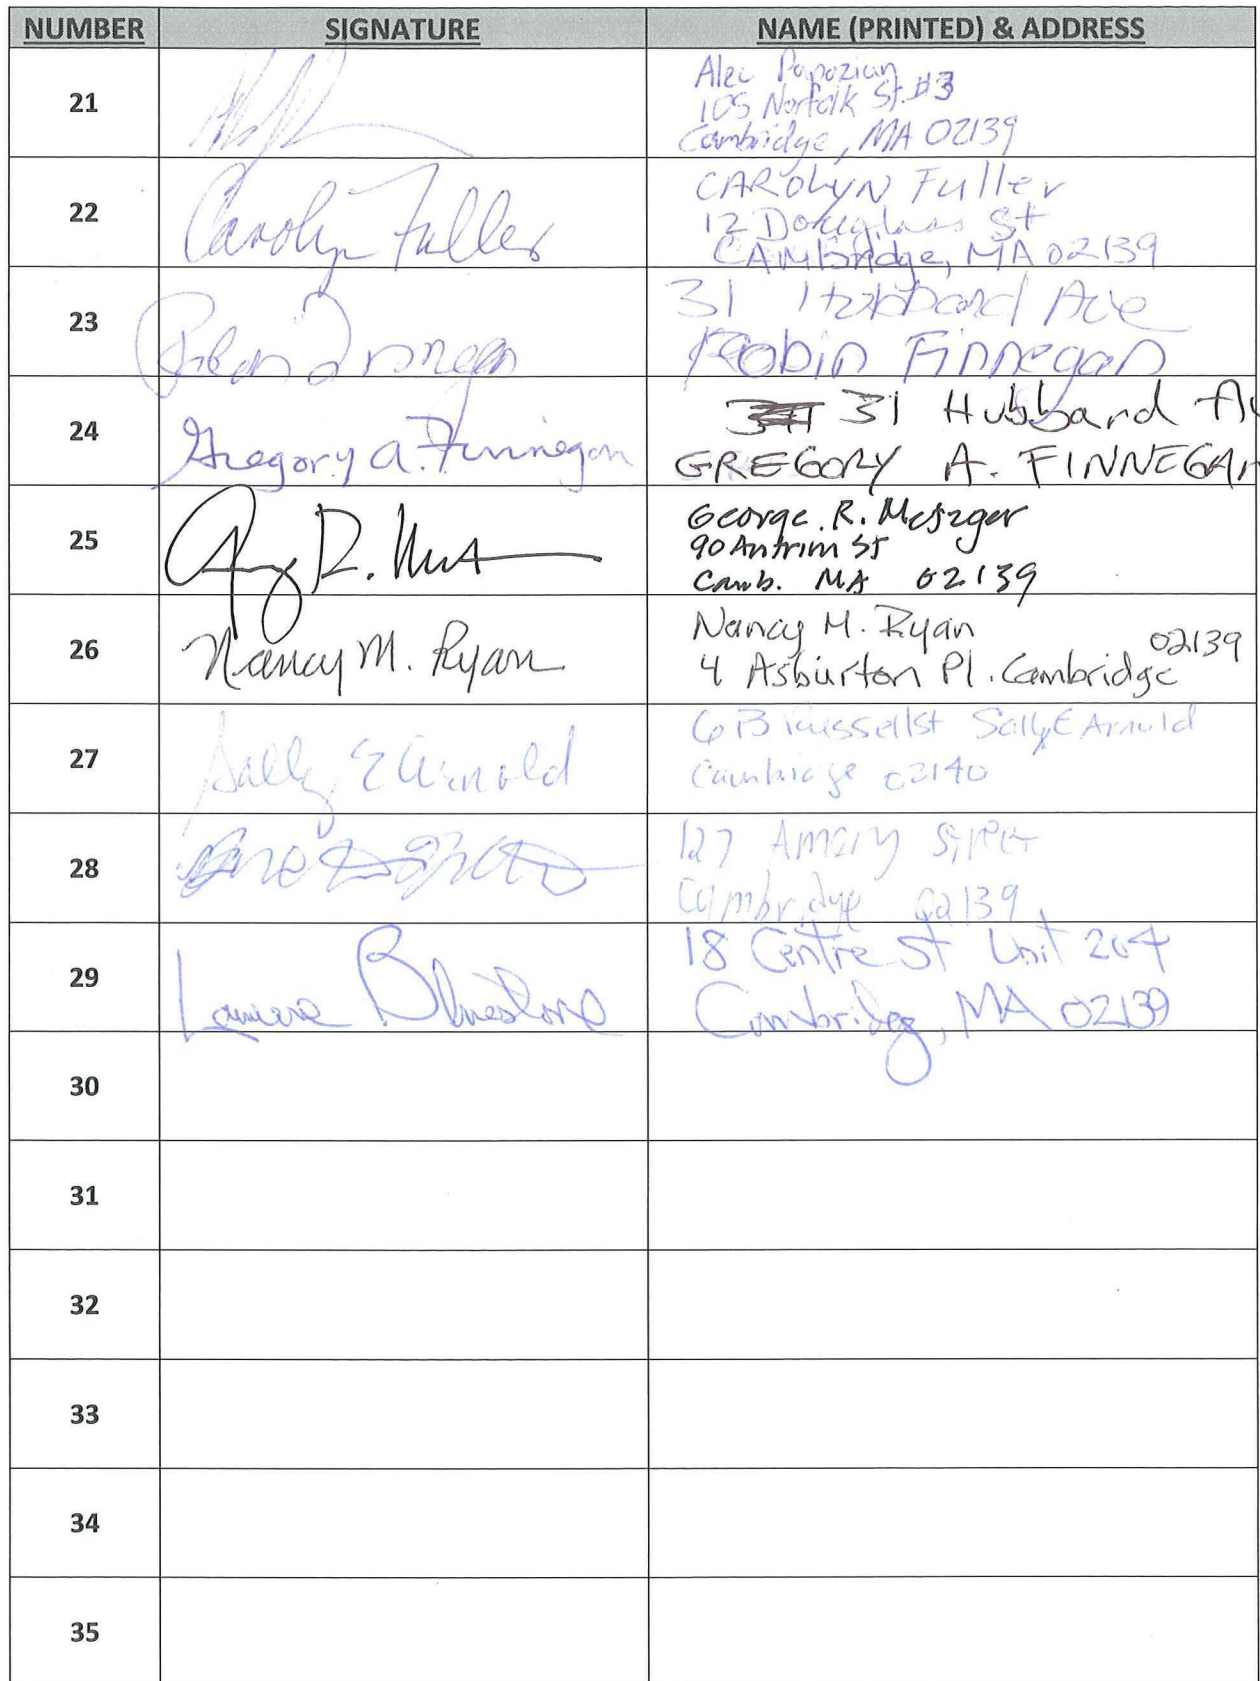 NUMBER SIGNATURE NAME (PRINTED) & ADDRESS
21 Alec Papazian
105 Norfolk St. #3
Cambridge, MA 02139
22 Carolyn Fuller CAROLYN Fuller
12 Douglass St
CAMbridge, MA 02139
23 31 Hubbard Ave
Robin Finnegan Robin Finnegan
24 31 Hubbard Av
Gregory A. Finnegan GREGORY A. FINNEGAN
25 George R. Metzger
90 Antrim St
Camb. MA 02139
26 Nancy M. Ryan Nancy M. Ryan
4 Asburton Pl. Cambridge 02139
27 Sally E Arnold 6B Russell St Sally E Arnold
Cambridge 02140
28 127 Amory Street
Cambridge 02139
29 Bluestone 18 Centre St Unit 204
Cambridge, MA 02139
30
31
32
33
34
35